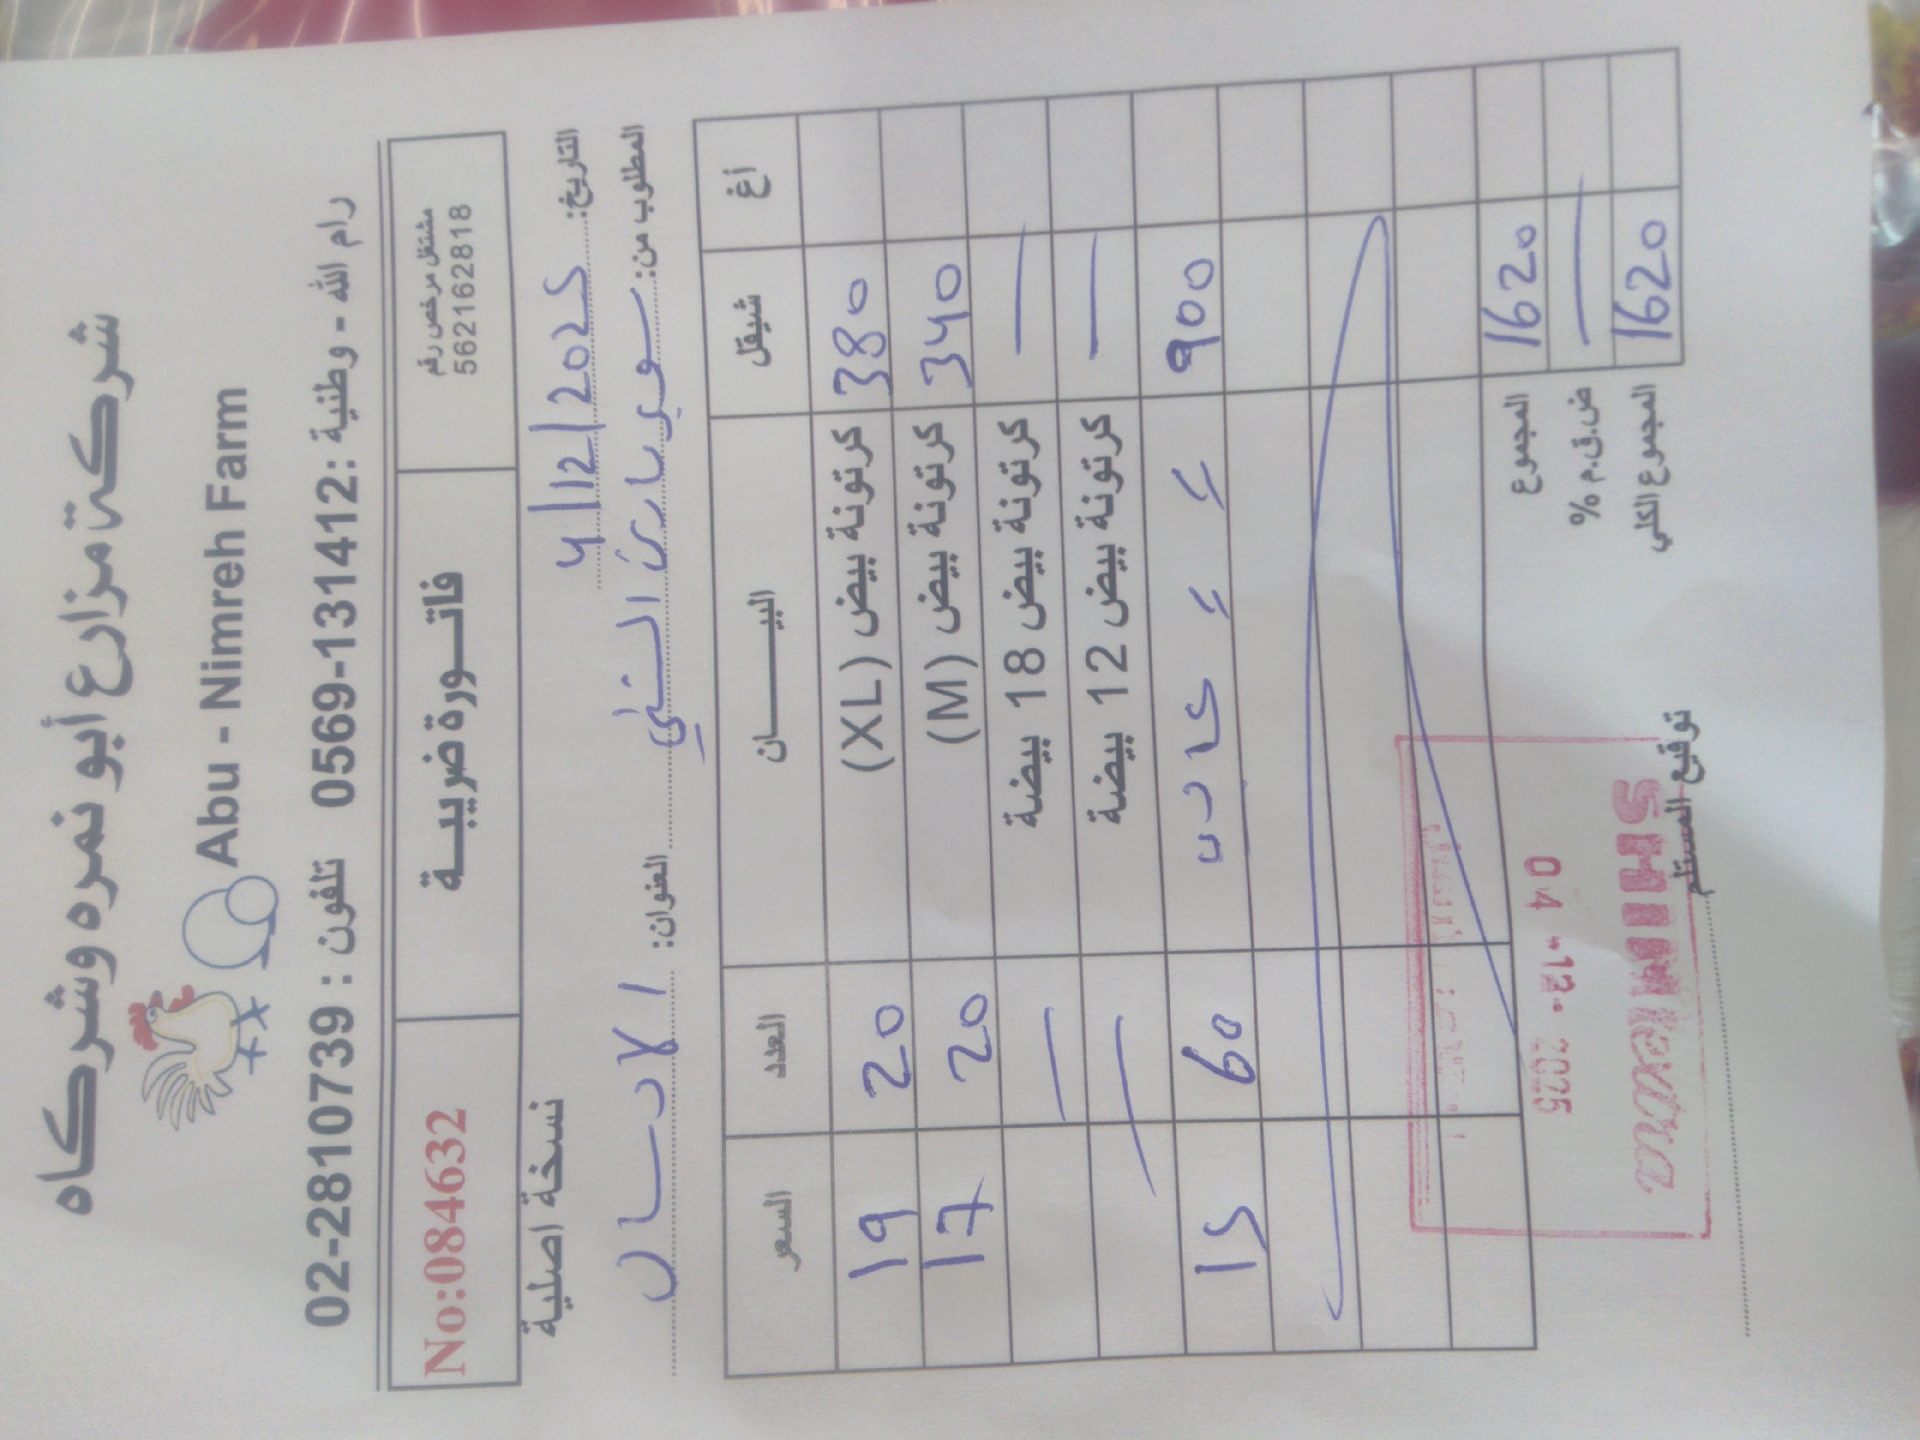 شركة مزارع أبو نمره وشركاه
Abu - Nimreh Farm
رام الله - وطنية: 0569-131412 تلفون : 02-2810739
مشتغل مرخص رقم
562162818
فاتورة ضريبية
No:084632
التاريخ: 4/12/2025
نسخة اصلية
المطلوب من: سوبر ماركت
العنوان:
السعر العدد البيان شيقل أغ
19 20 كرتونة بيض (XL) 380
17 20 كرتونة بيض (M) 340
— كرتونة بيض 18 بيضة —
— كرتونة بيض 12 بيضة —
15 60 900
المجموع 1620
ض.ق.م % —
المجموع الكلي 1620
04 -12- 2025
توقيع المستلم